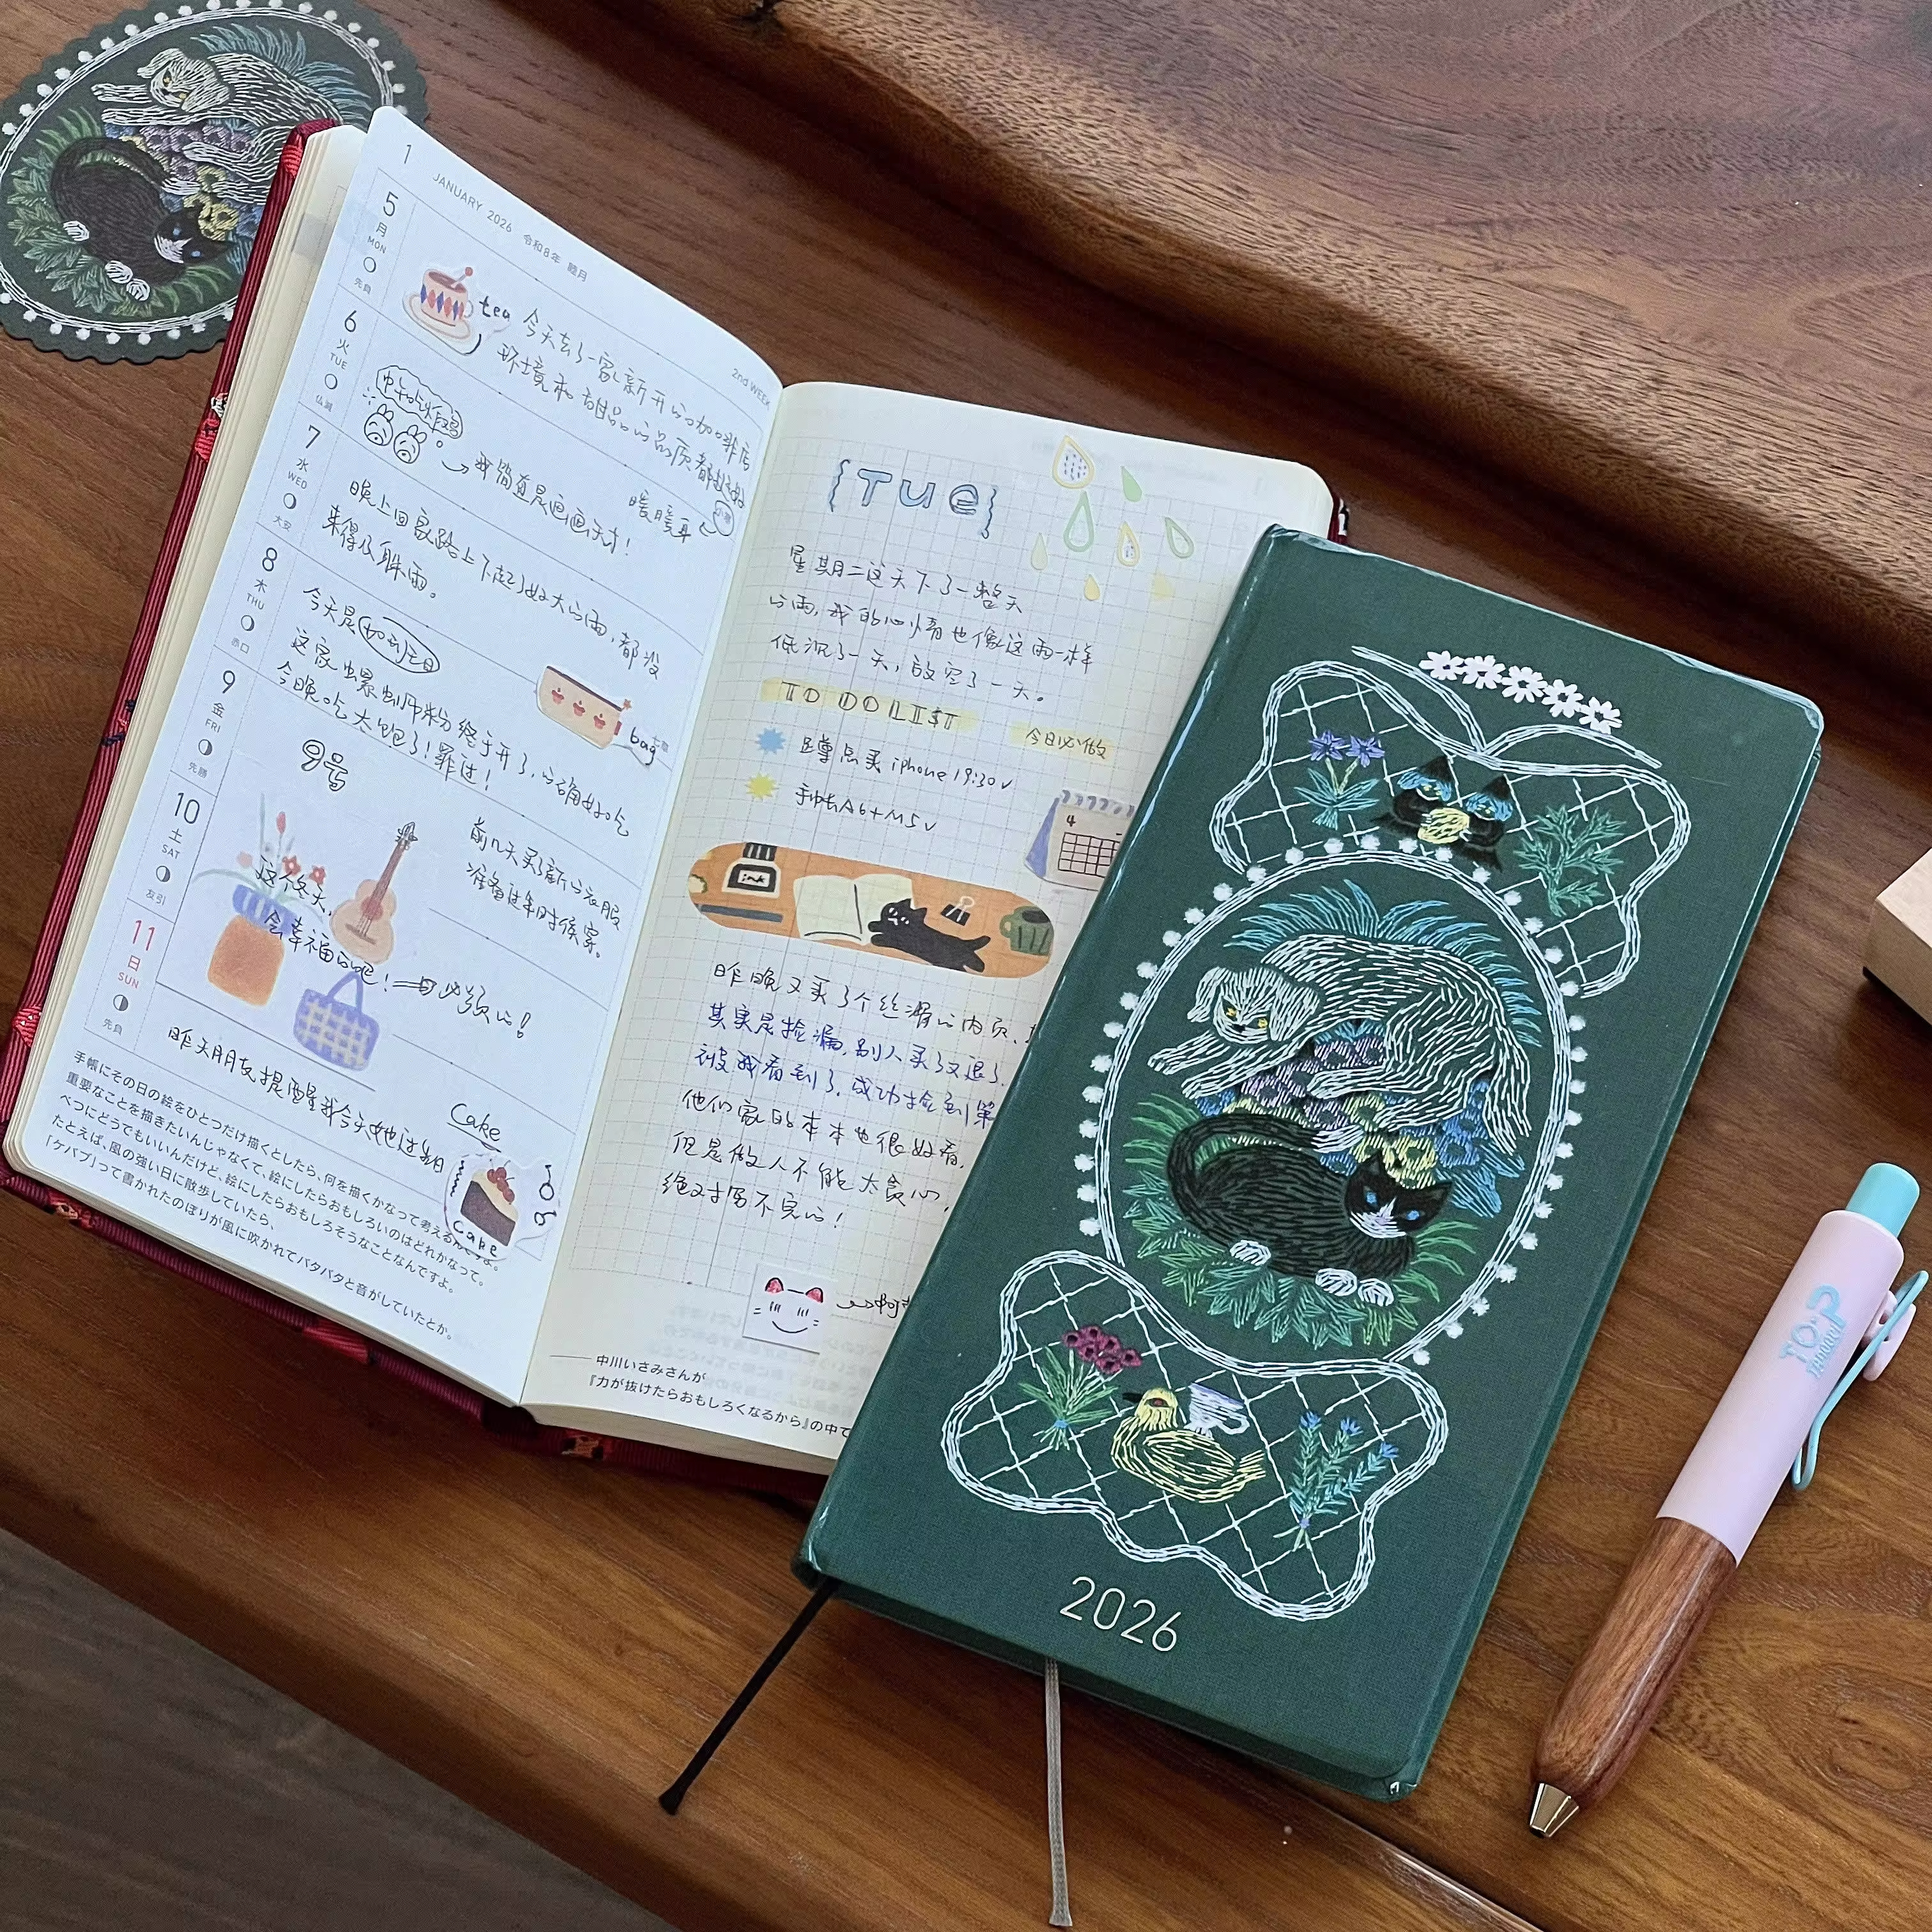 1
JANUARY 2026 令和8年 睦月
2nd WEEK
5
月
MON
先負
tea 今天去了一家新开的咖啡店
环境和甜品的品质都挺好
6
火
TUE
仏滅
我简直是画画天才!
暖暖耳
7
水
WED
大安
晚上回家路上下起了好大的雨,都没
来得及躲雨。
8
木
THU
赤口
今天是
这家螺蛳粉终于开了,的确好吃
今晚吃太饱了!罪过!
bag
9
金
FRI
先勝
9号
10
土
SAT
友引
前几天买了新的衣服
准备过年时候穿。
这个冬天,
会幸福的吧!
必须的!
11
日
SUN
先負
昨天朋友提醒我今天她过生日
Cake
cake
手帳にその日の絵をひとつだけ描くとしたら、何を描くかなって考える
重要なことを描きたいんじゃなくて、絵にしたらおもしろいのはどれかなって。
べつにどうでもいいんだけど、絵にしたらおもしろそうなことなんですよ。
たとえば、風の強い日に散歩していたら、
「ケバブ」って書かれたのぼりが風に吹かれてバタバタと音がしていたとか。
{TUE}
星期二这天下了一整天
的雨,我的心情也像这雨一样
低沉了一天,放空了一天。
TO DO LIST
今日必做
蹲点买 iphone 19:30 √
手帐A6+M5 √
4
ink
昨晚又买了个丝滑的内页,
其实是捡漏,别人买了又退了.
被我看到了.成功捡到
他们家的本本也很好看,
但是做人不能太贪心,
绝对写不完的!
中川いさみさんが
『力が抜けたらおもしろくなるから』の中で
2026